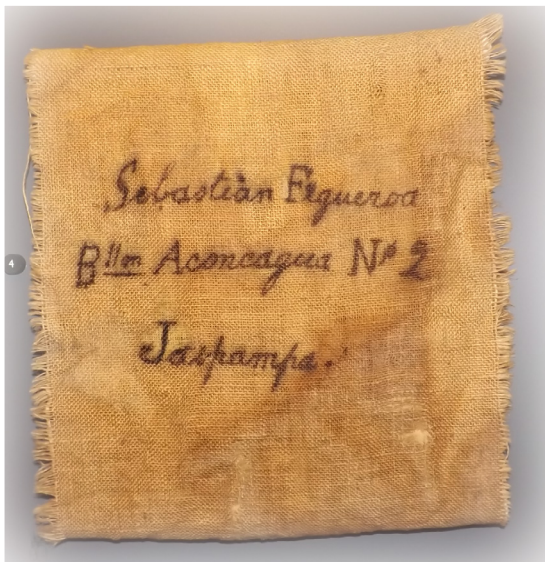 Sebastian Figueroa
Bllon Aconcagua Nº 2
Jaspampa.
4